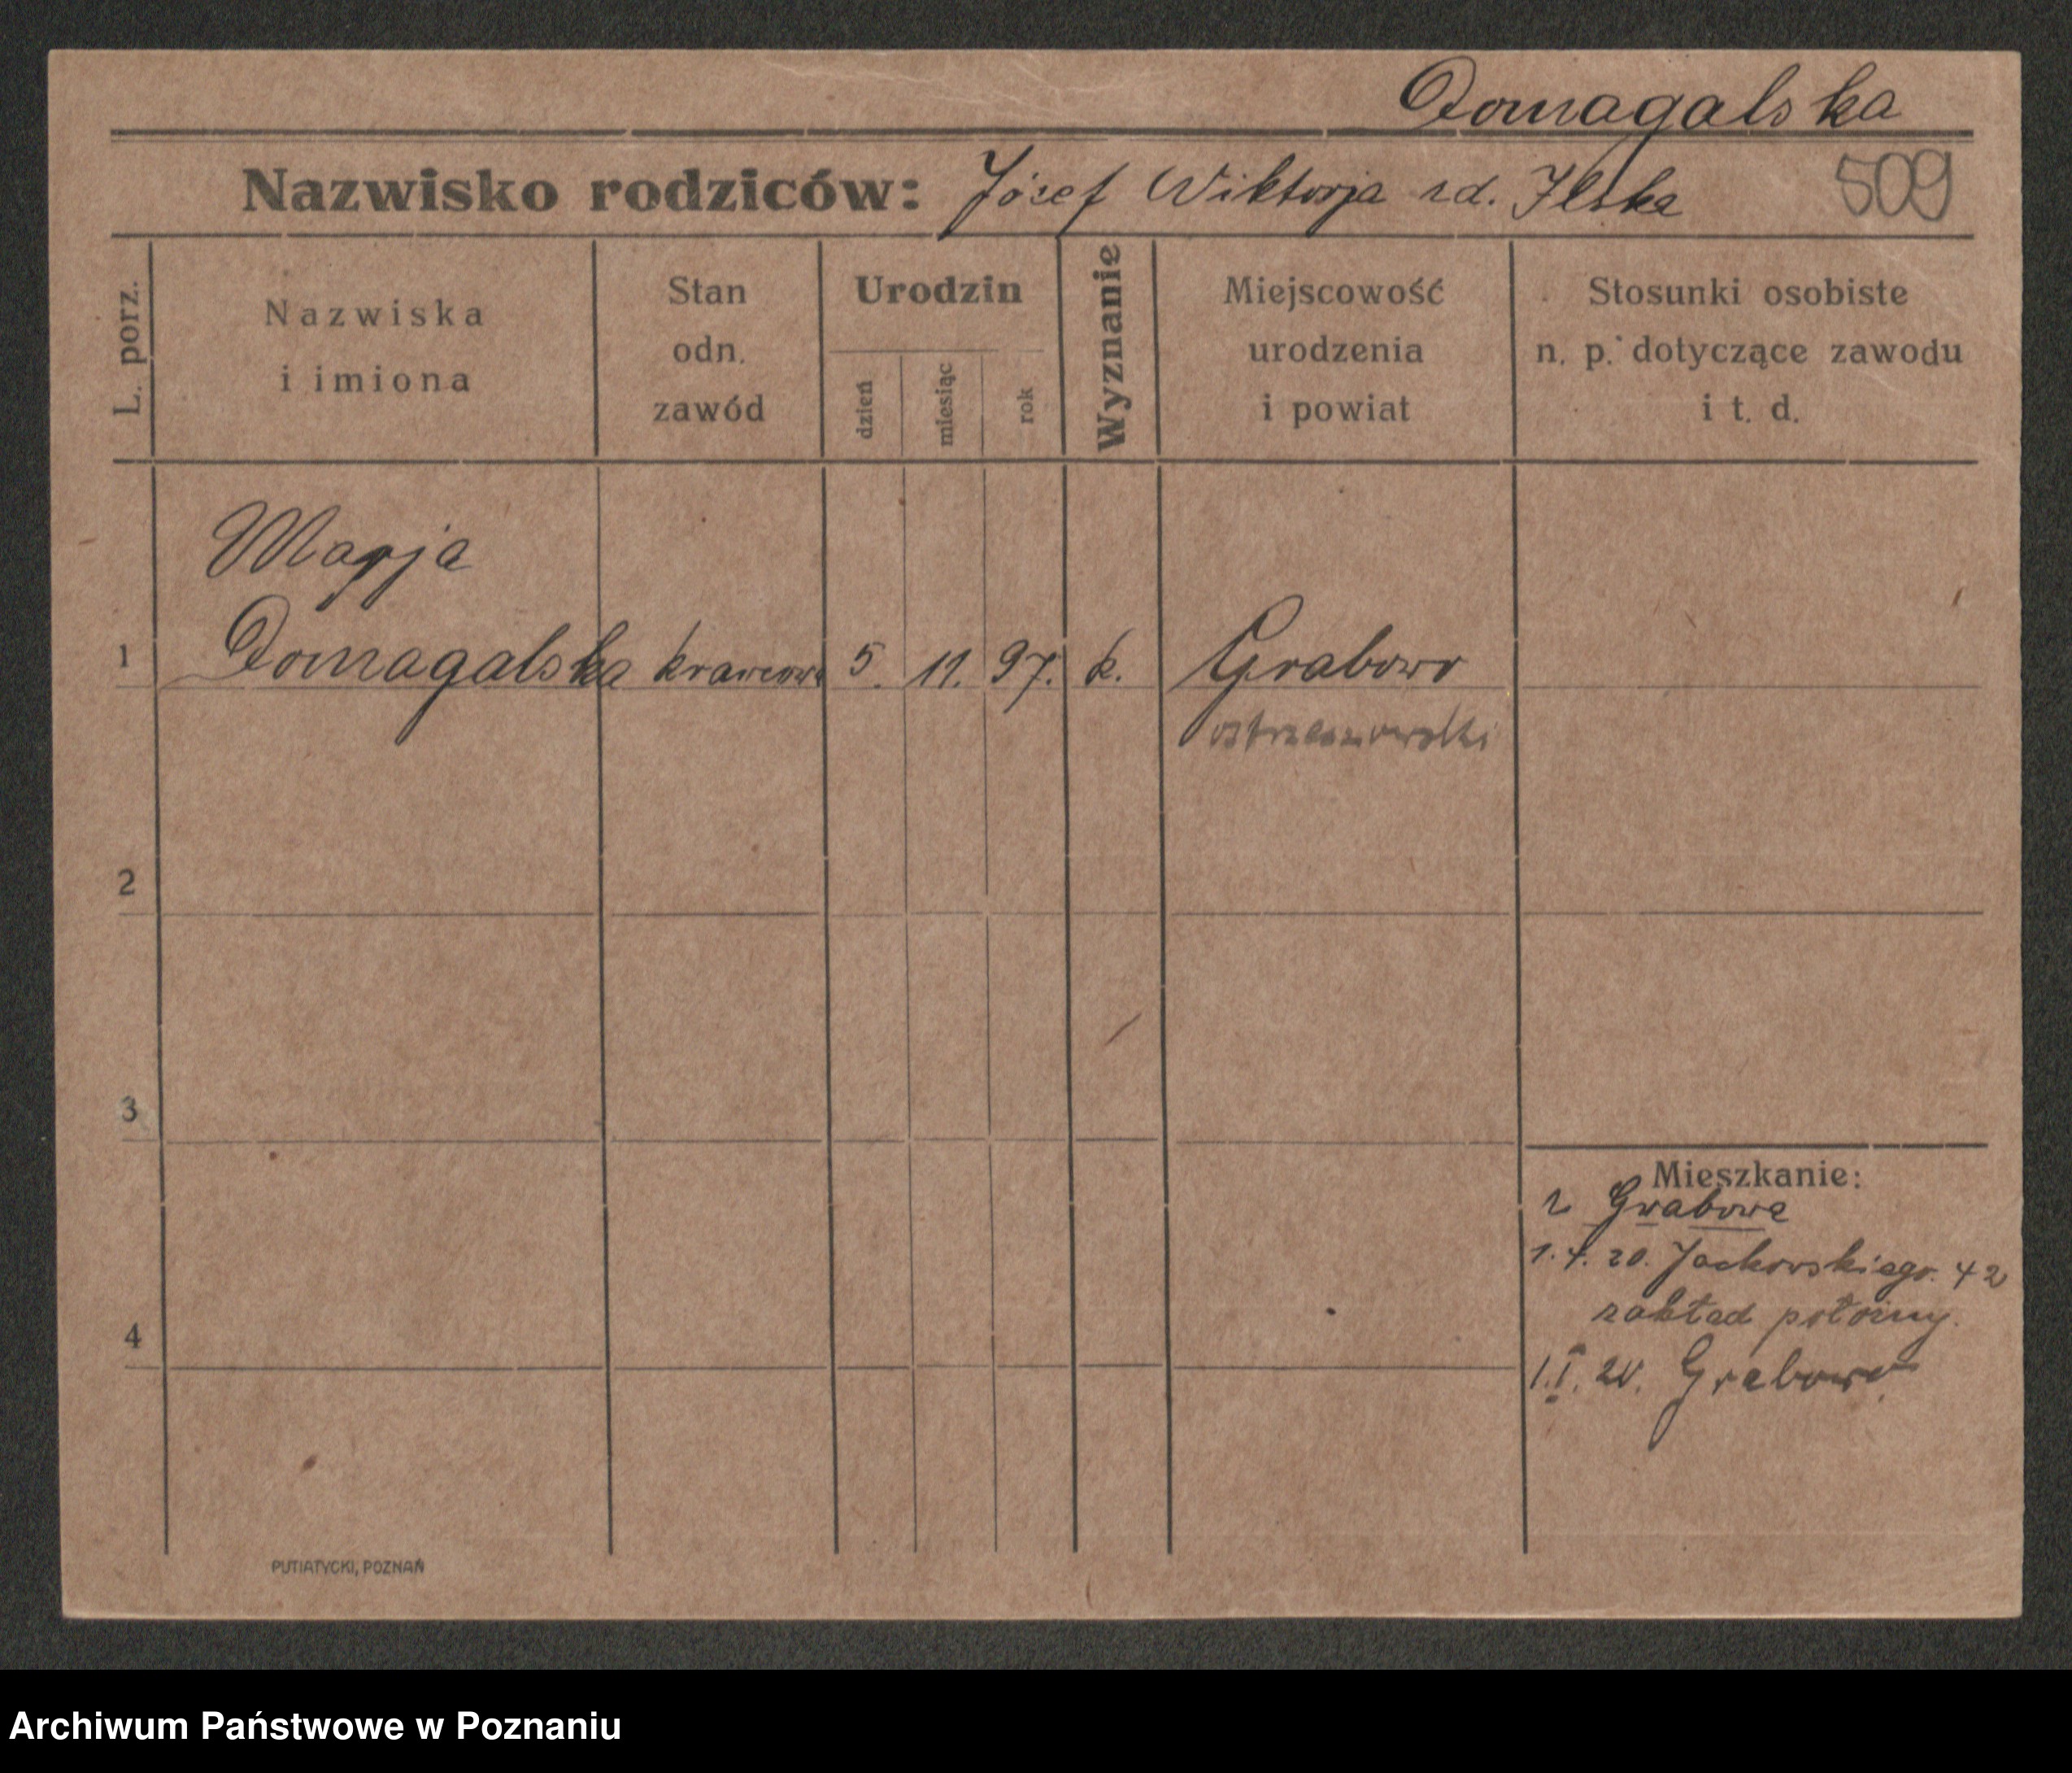 Domagalska
Nazwisko rodziców: Józef Wiktorja zd. Ilska 509
L. porz.
Nazwiska
i imiona
Stan
odn.
zawód
Urodzin
dzień
miesiąc
rok
Wyznanie
Miejscowość
urodzenia
i powiat
Stosunki osobiste
n. p. dotyczące zawodu
i t. d.
Marja
1 Domagalska krawcowa 5. 11. 97. k. Grabow
ostrzeszowski
2
3
4
Mieszkanie:
z Grabowa
1.4.20. Jackowskiego 42
zakład położny.
Grabow
PUTIATYCKI, POZNAŃ
Archiwum Państwowe w Poznaniu